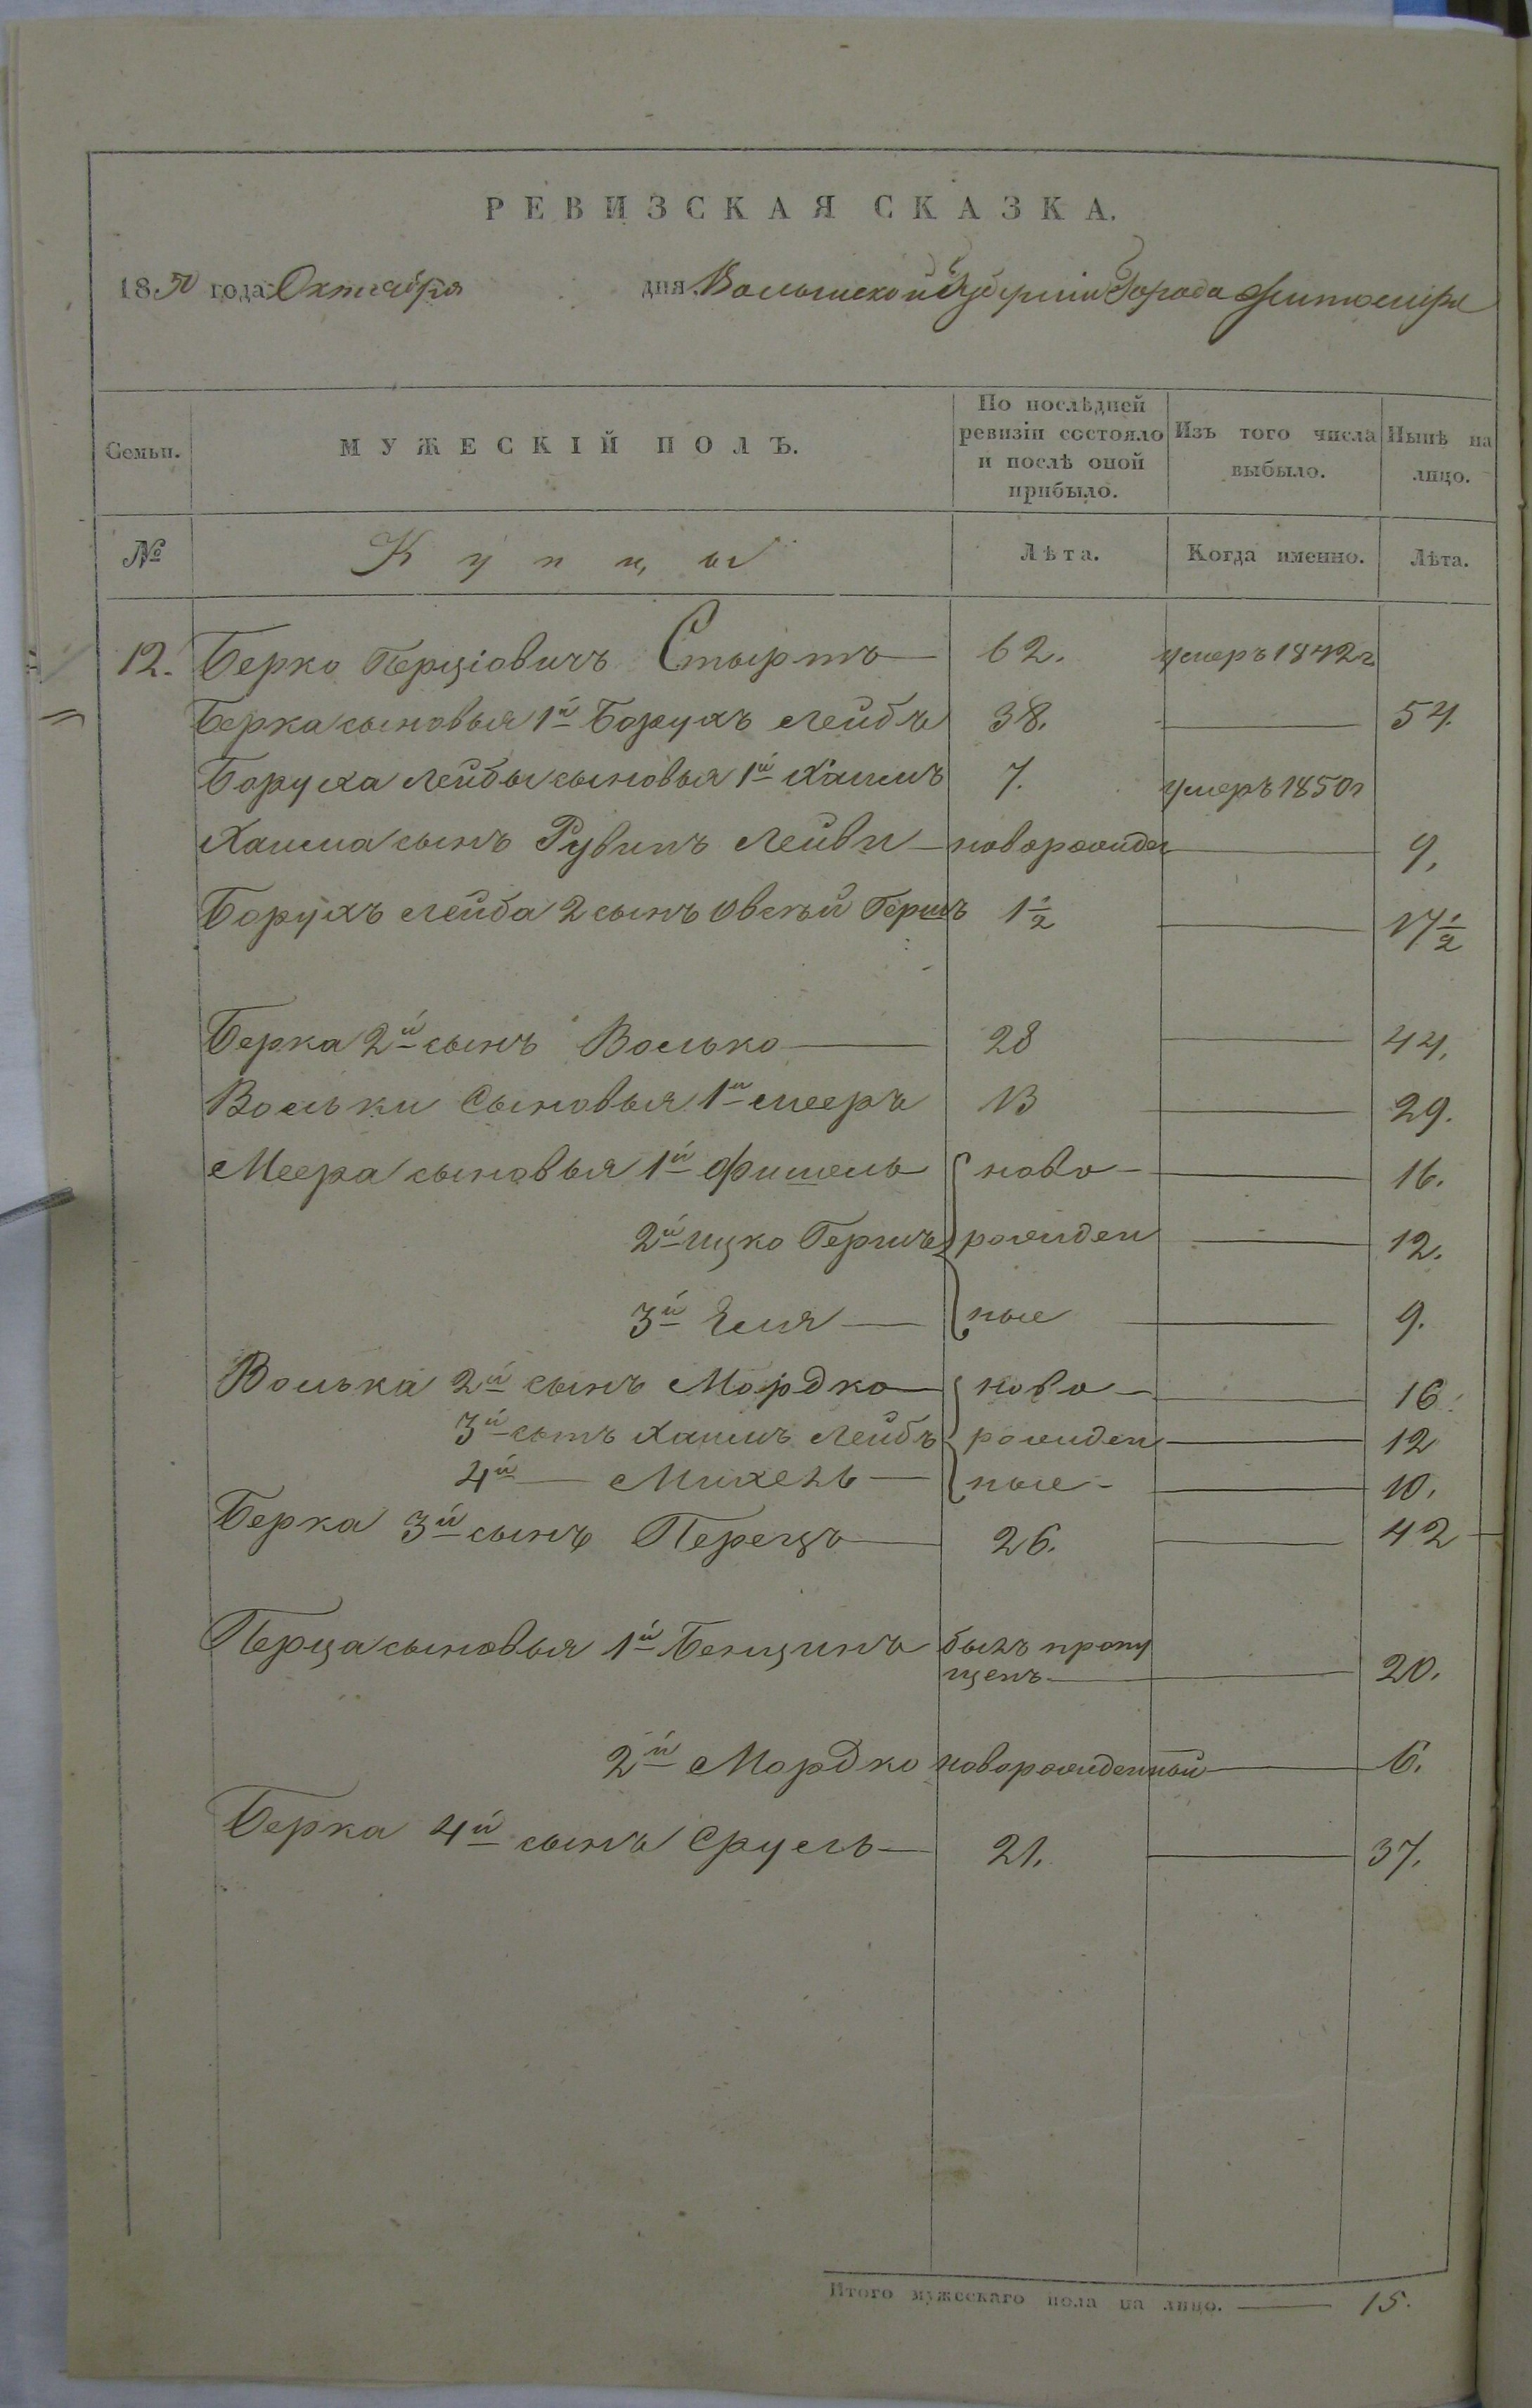 РЕВИЗСКАЯ СКАЗКА.
1850 года Октября дня Волынской Губерніи Города Житомира
Семьи. МУЖЕСКІЙ ПОЛЪ. По послѣдней ревизіи состояло и послѣ оной прибыло. Изъ того числа выбыло. Нынѣ на лицо.
№ Купцы Лѣта. Когда именно. Лѣта.
12. Берко Перціовичъ Стыртъ 62. умеръ 1842г
Берка сыновья 1й Борухъ Лейбъ 38. 54.
Боруха Лейбы сыновья 1й Хаимъ 7. умеръ 1850г
Хаима сынъ Рувинъ Лейви новорожден 9.
Борухъ Лейба 2 сынъ Овсѣй Гершъ 1½ 17½
Берка 2й сынъ Волько 28 44.
Вольки Сыновья 1й Мееръ 13 29.
Меера сыновья 1й Фишель ново- 16.
2й Ицко Гершъ рожден 12.
3й Еля ные 9.
Волька 2й сынъ Мордко ново- 16.
3й сынъ Хаимъ Лейбъ рожден 12
4й Михель ные- 10.
Берка 3й сынъ Перецъ 26. 42
Перца сыновья 1й Бенцинъ былъ пропу
щенъ 20.
2й Мордко новорожденный 6.
Берка 4й сынъ Сруель 21. 37.
Итого мужескаго пола на лицо. 15.